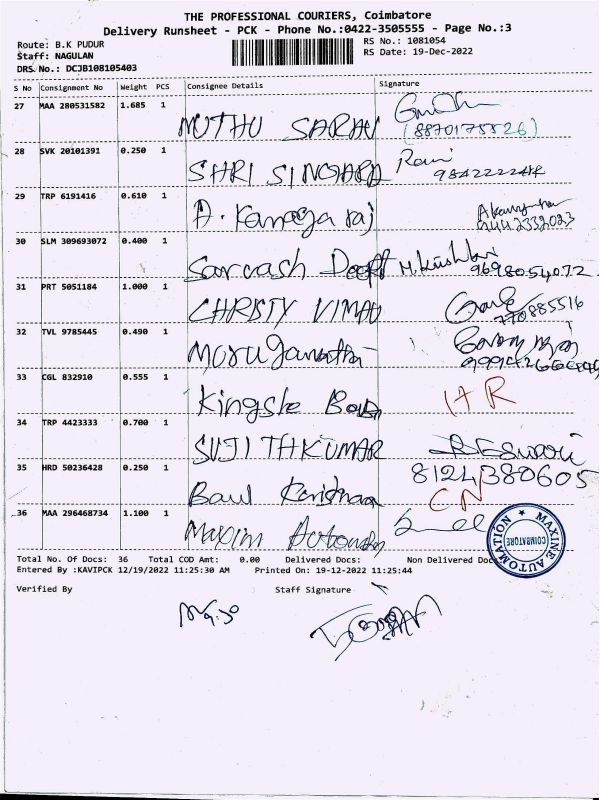 THE PROFESSIONAL COURIERS, Coimbatore
Delivery Runsheet - PCK - Phone No.:0422-3505555 - Page No.:3
Route: B.K PUDUR
RS No.: 1081054
Staff: NAGULAN
RS Date: 19-Dec-2022
DRS No.: DCJB108105403
S No Consignment No Weight PCS Consignee Details Signature
27 MAA 280531582 1.685 1
MUTHU SARAV
(8870175526)
28 SVK 20101391 0.250 1
SHRI Ravi
29 TRP 6191416 0.610 1
A. Kanagaraj
9442332023
30 SLM 309693072 0.400 1
Sarvash 9698054072
31 PRT 5051184 1.000 1
CHRISTY VIMAU
770885516
32 TVL 9785445 0.490 1
33 CGL 832910 0.555 1
Kingsle HR
34 TRP 4423333 0.700 1
SUJITHKUMAR
35 HRD 50236428 0.250 1
8124380605
CN
36 MAA 296468734 1.100 1
Maxim
MAXINE AUTOMATION
COIMBATORE
Total No. Of Docs: 36 Total COD Amt: 0.00 Delivered Docs: Non Delivered Doc
Entered By :KAVIPCK 12/19/2022 11:25:30 AM Printed On: 19-12-2022 11:25:44
Verified By Staff Signature